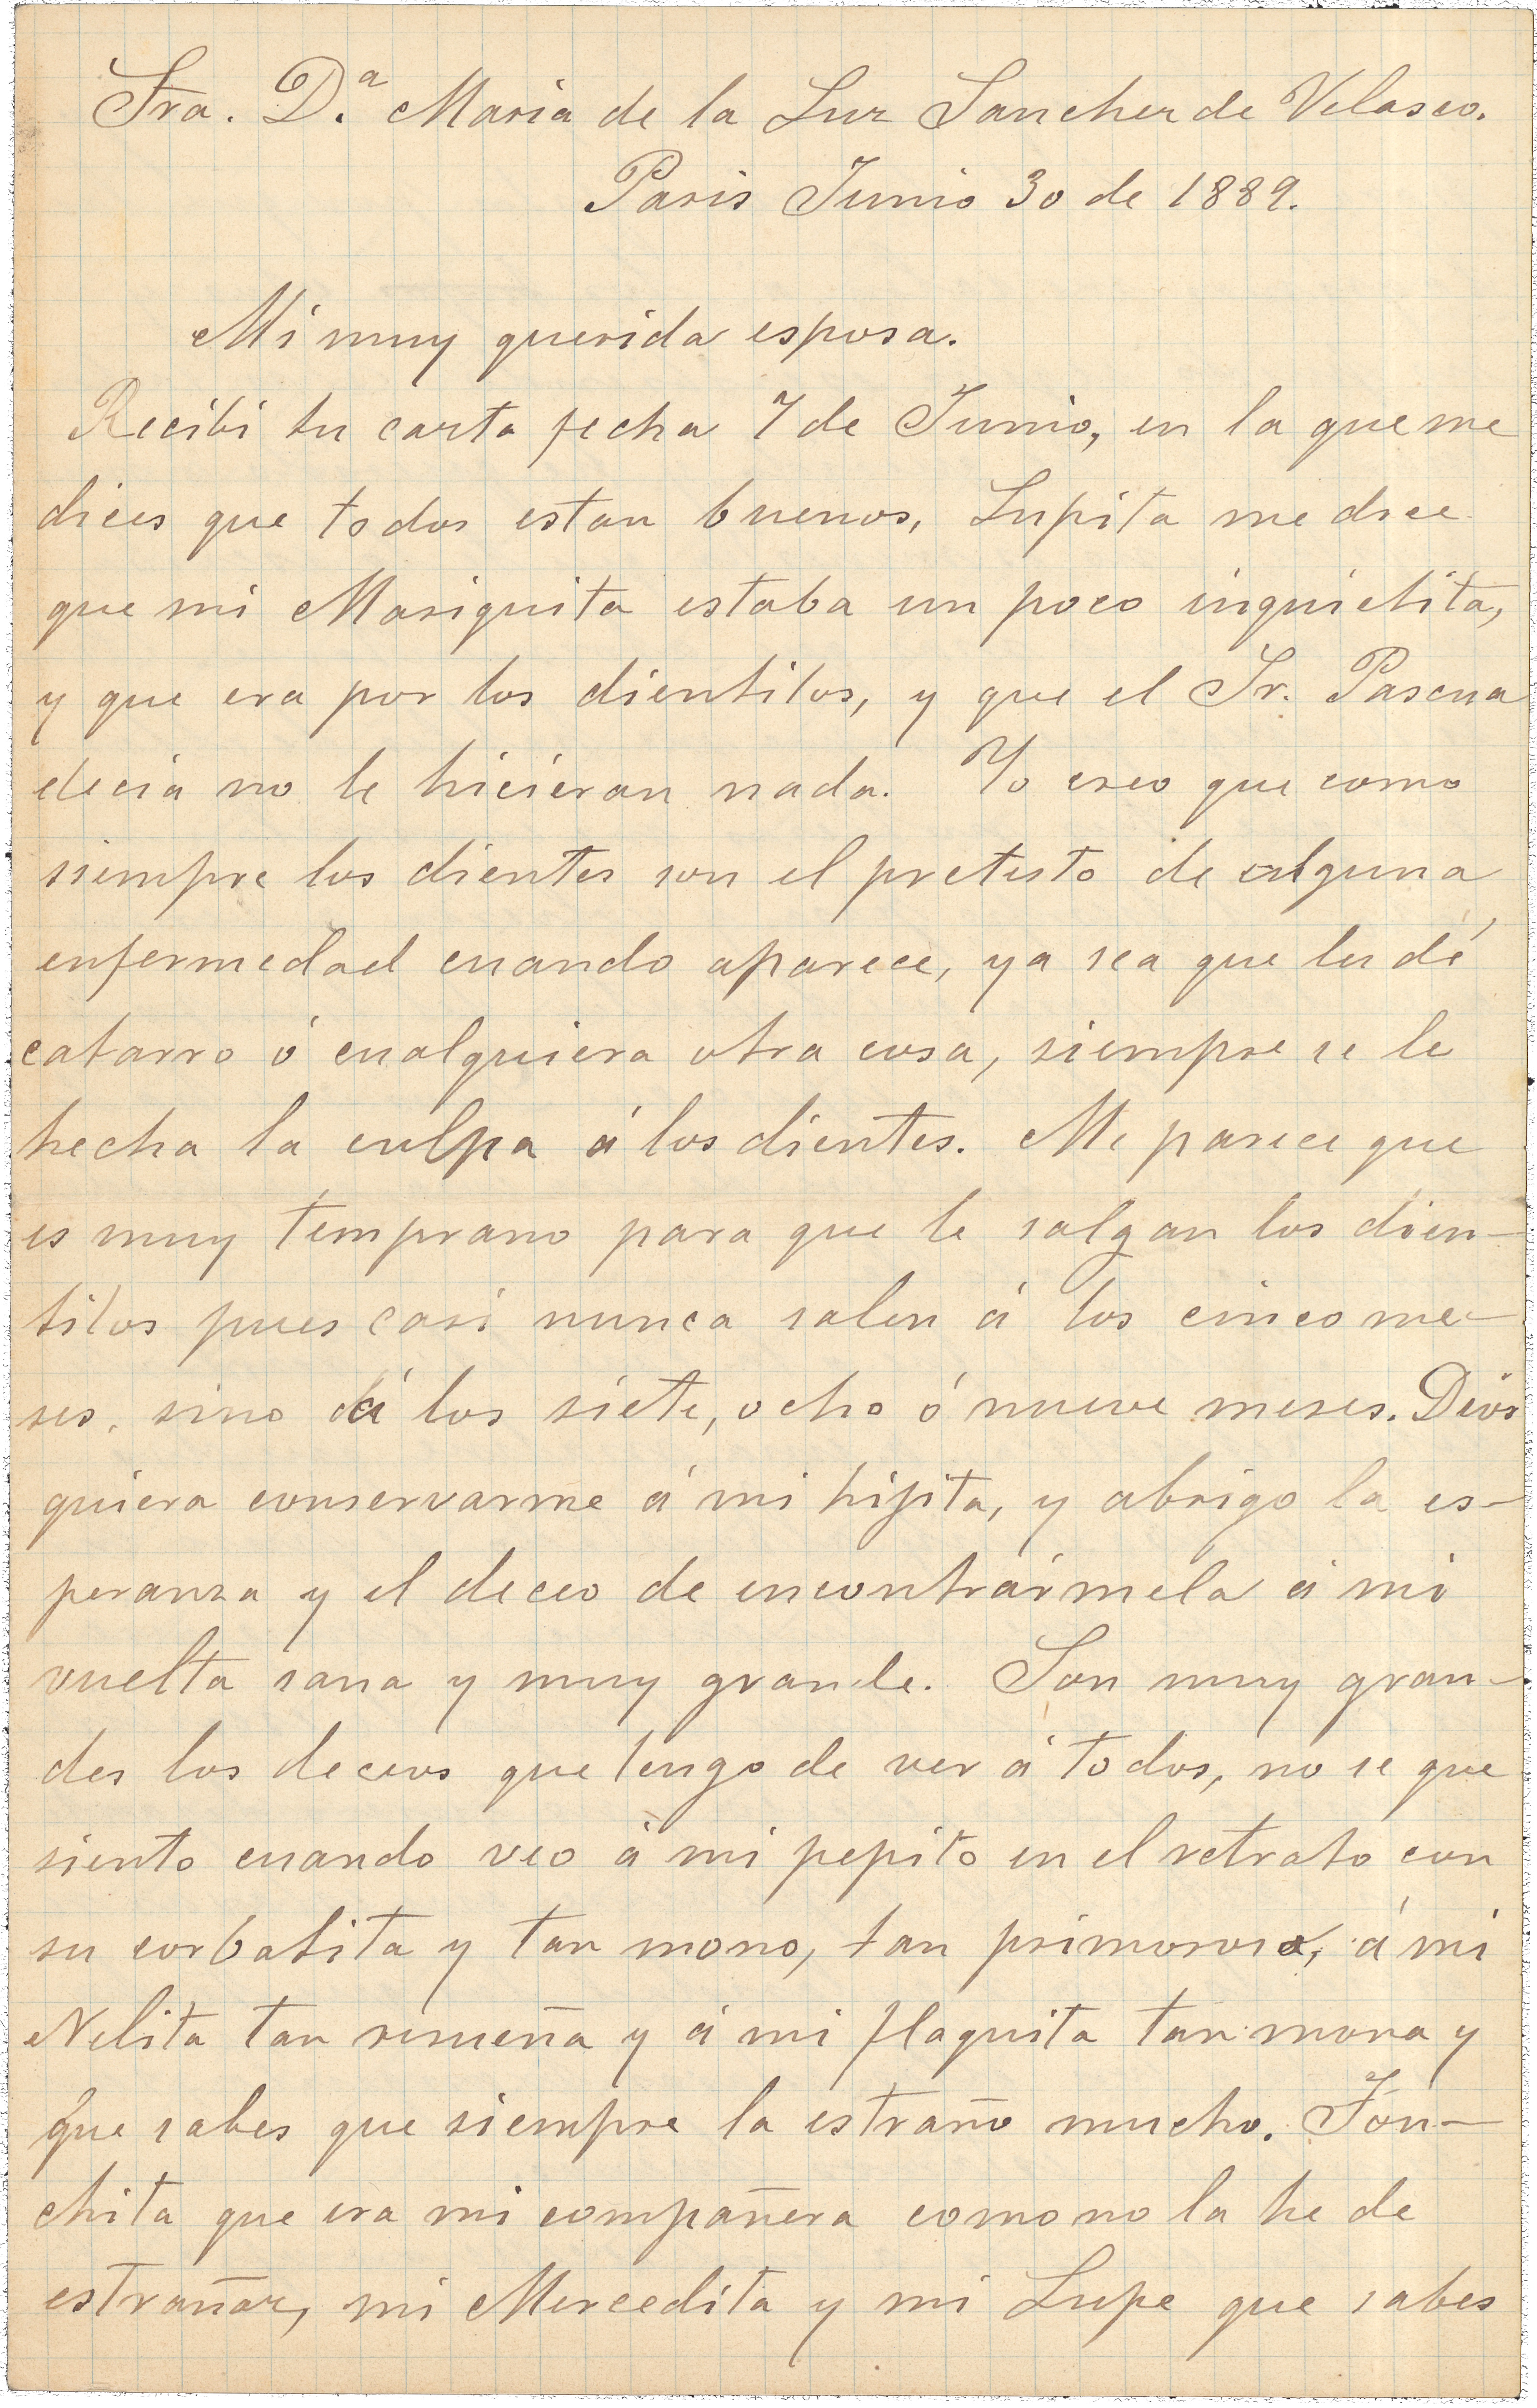 Sra. D.ª Maria de la Luz Sanchez de Velasco.
Paris Junio 30 de 1889.
Mi muy querida esposa.
Recibi tu carta fecha 7 de Junio, en la que me
dices que todos estan buenos, Lupita me dice
que mi Mariquita estaba un poco inquietita,
y que era por los dientitos, y que el Sr. Pascua
decia no le hicieran nada. Yo creo que como
siempre los dientes son el pretesto de alguna
enfermedad cuando aparece, ya sea que les dé
catarro ó cualquiera otra cosa, siempre se le
hecha la culpa á los dientes. Me parece que
es muy temprano para que le salgan los dien-
titos pues casi nunca salen á los cinco me-
ses, sino á los siete, ocho ó nueve meses. Dios
quiera conservarme á mi hijita, y abrigo la es-
peranza y el deceo de encontrármela á mi
vuelta sana y muy grande. Son muy gran-
des los deceos que tengo de ver á todos, no se que
siento cuando veo á mi pepito en el retrato con
su corbatita y tan mono, tan primoroso, á mi
Nelita tan risueña y á mi flaquita tan mona y
que sabes que siempre la estraño mucho. Con-
chita que era mi compañera como no la he de
estrañar, mi Mercedita y mi Lupe que sabes